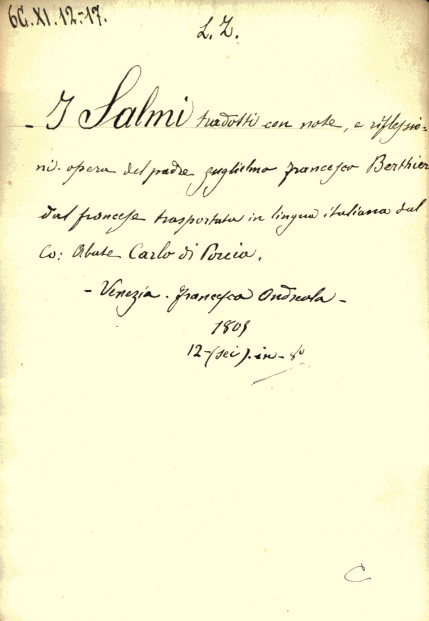 6C.XI.12-17.
L. Z.
- I Salmi tradotti con note, e riflessio-
ni. opera del padre Guglielmo Francesco Berthier
dal francese trasportata in lingua italiana dal
Co: Abate Carlo di Porcia.
- Venezia. Francesco Andreola -
12-(sei). in- 8º
C